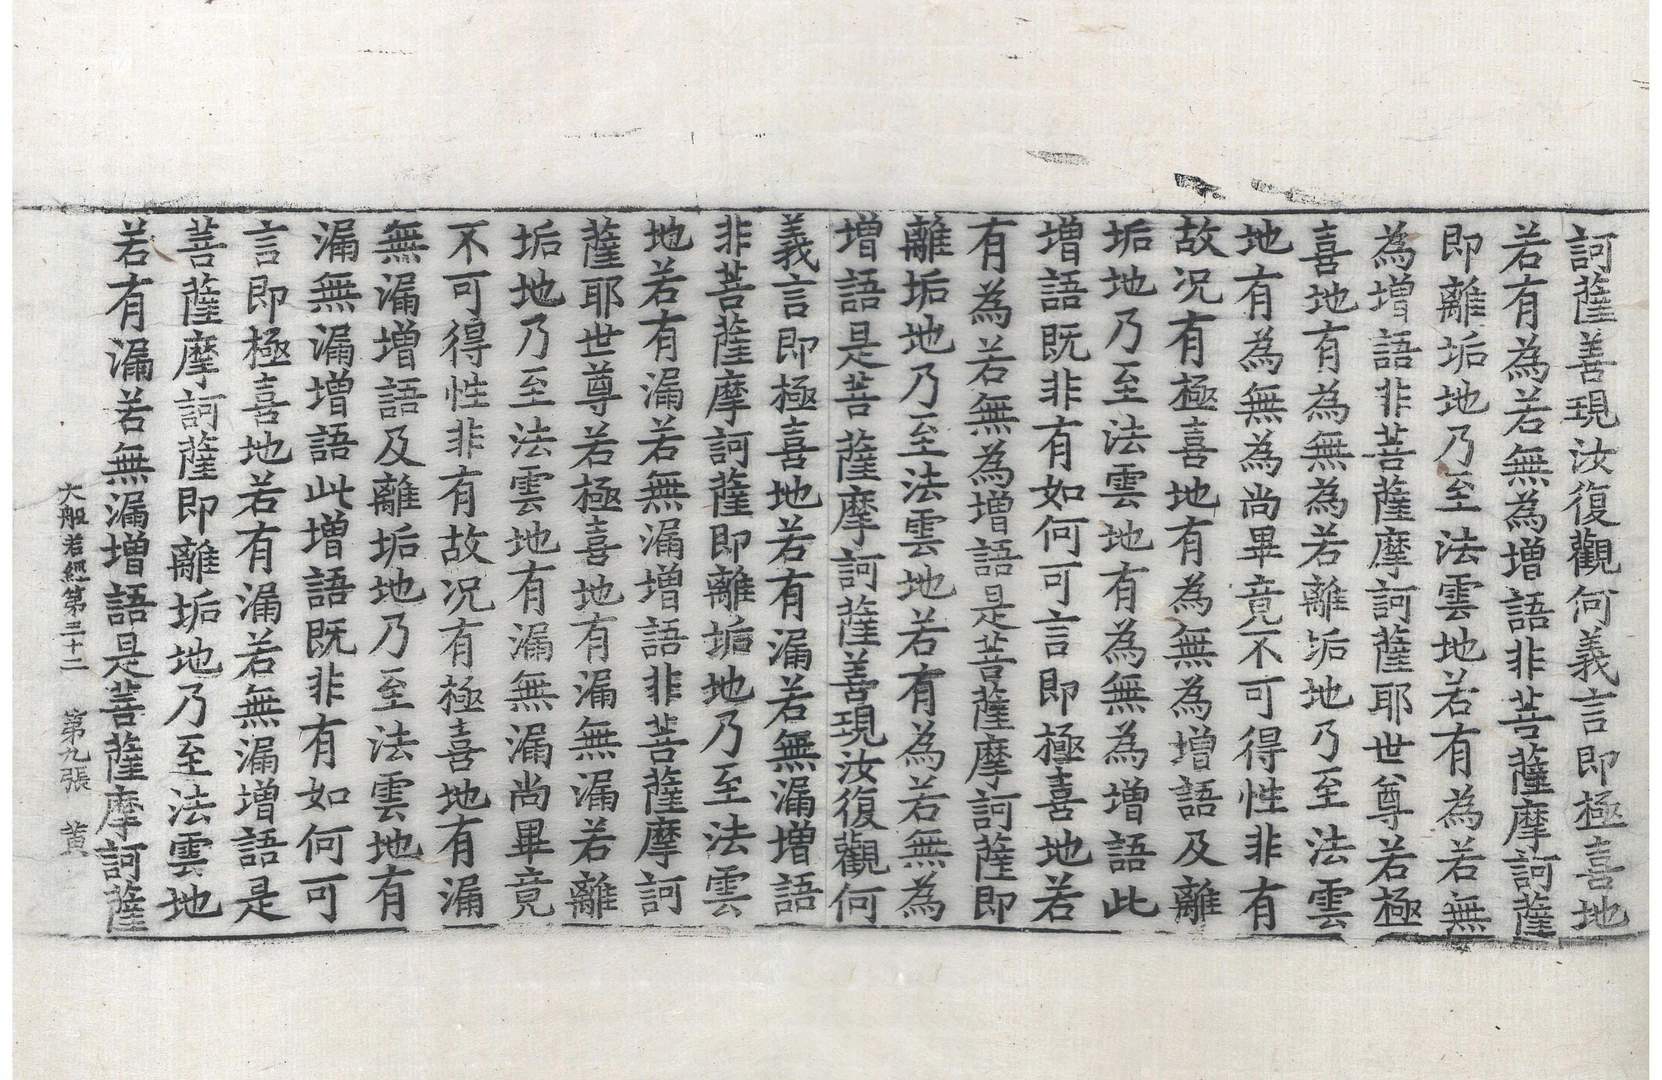 訶薩善現汝復觀何義言即極喜地
若有為若無為增語非菩薩摩訶薩
即離垢地乃至法雲地若有為若無
為增語非菩薩摩訶薩耶世尊若極
喜地有為無為若離垢地乃至法雲
地有為無為尚畢竟不可得性非有
故况有極喜地有為無為增語及離
垢地乃至法雲地有為無為增語此
增語既非有如何可言即極喜地若
有為若無為增語是菩薩摩訶薩即
離垢地乃至法雲地若有為若無為
增語是菩薩摩訶薩善現汝復觀何
義言即極喜地若有漏若無漏增語
非菩薩摩訶薩即離垢地乃至法雲
地若有漏若無漏增語非菩薩摩訶
薩耶世尊若極喜地有漏無漏若離
垢地乃至法雲地有漏無漏尚畢竟
不可得性非有故况有極喜地有漏
無漏增語及離垢地乃至法雲地有
漏無漏增語此增語既非有如何可
言即極喜地若有漏若無漏增語是
菩薩摩訶薩即離垢地乃至法雲地
若有漏若無漏增語是菩薩摩訶薩
大般若經第三十二 第九張 黃